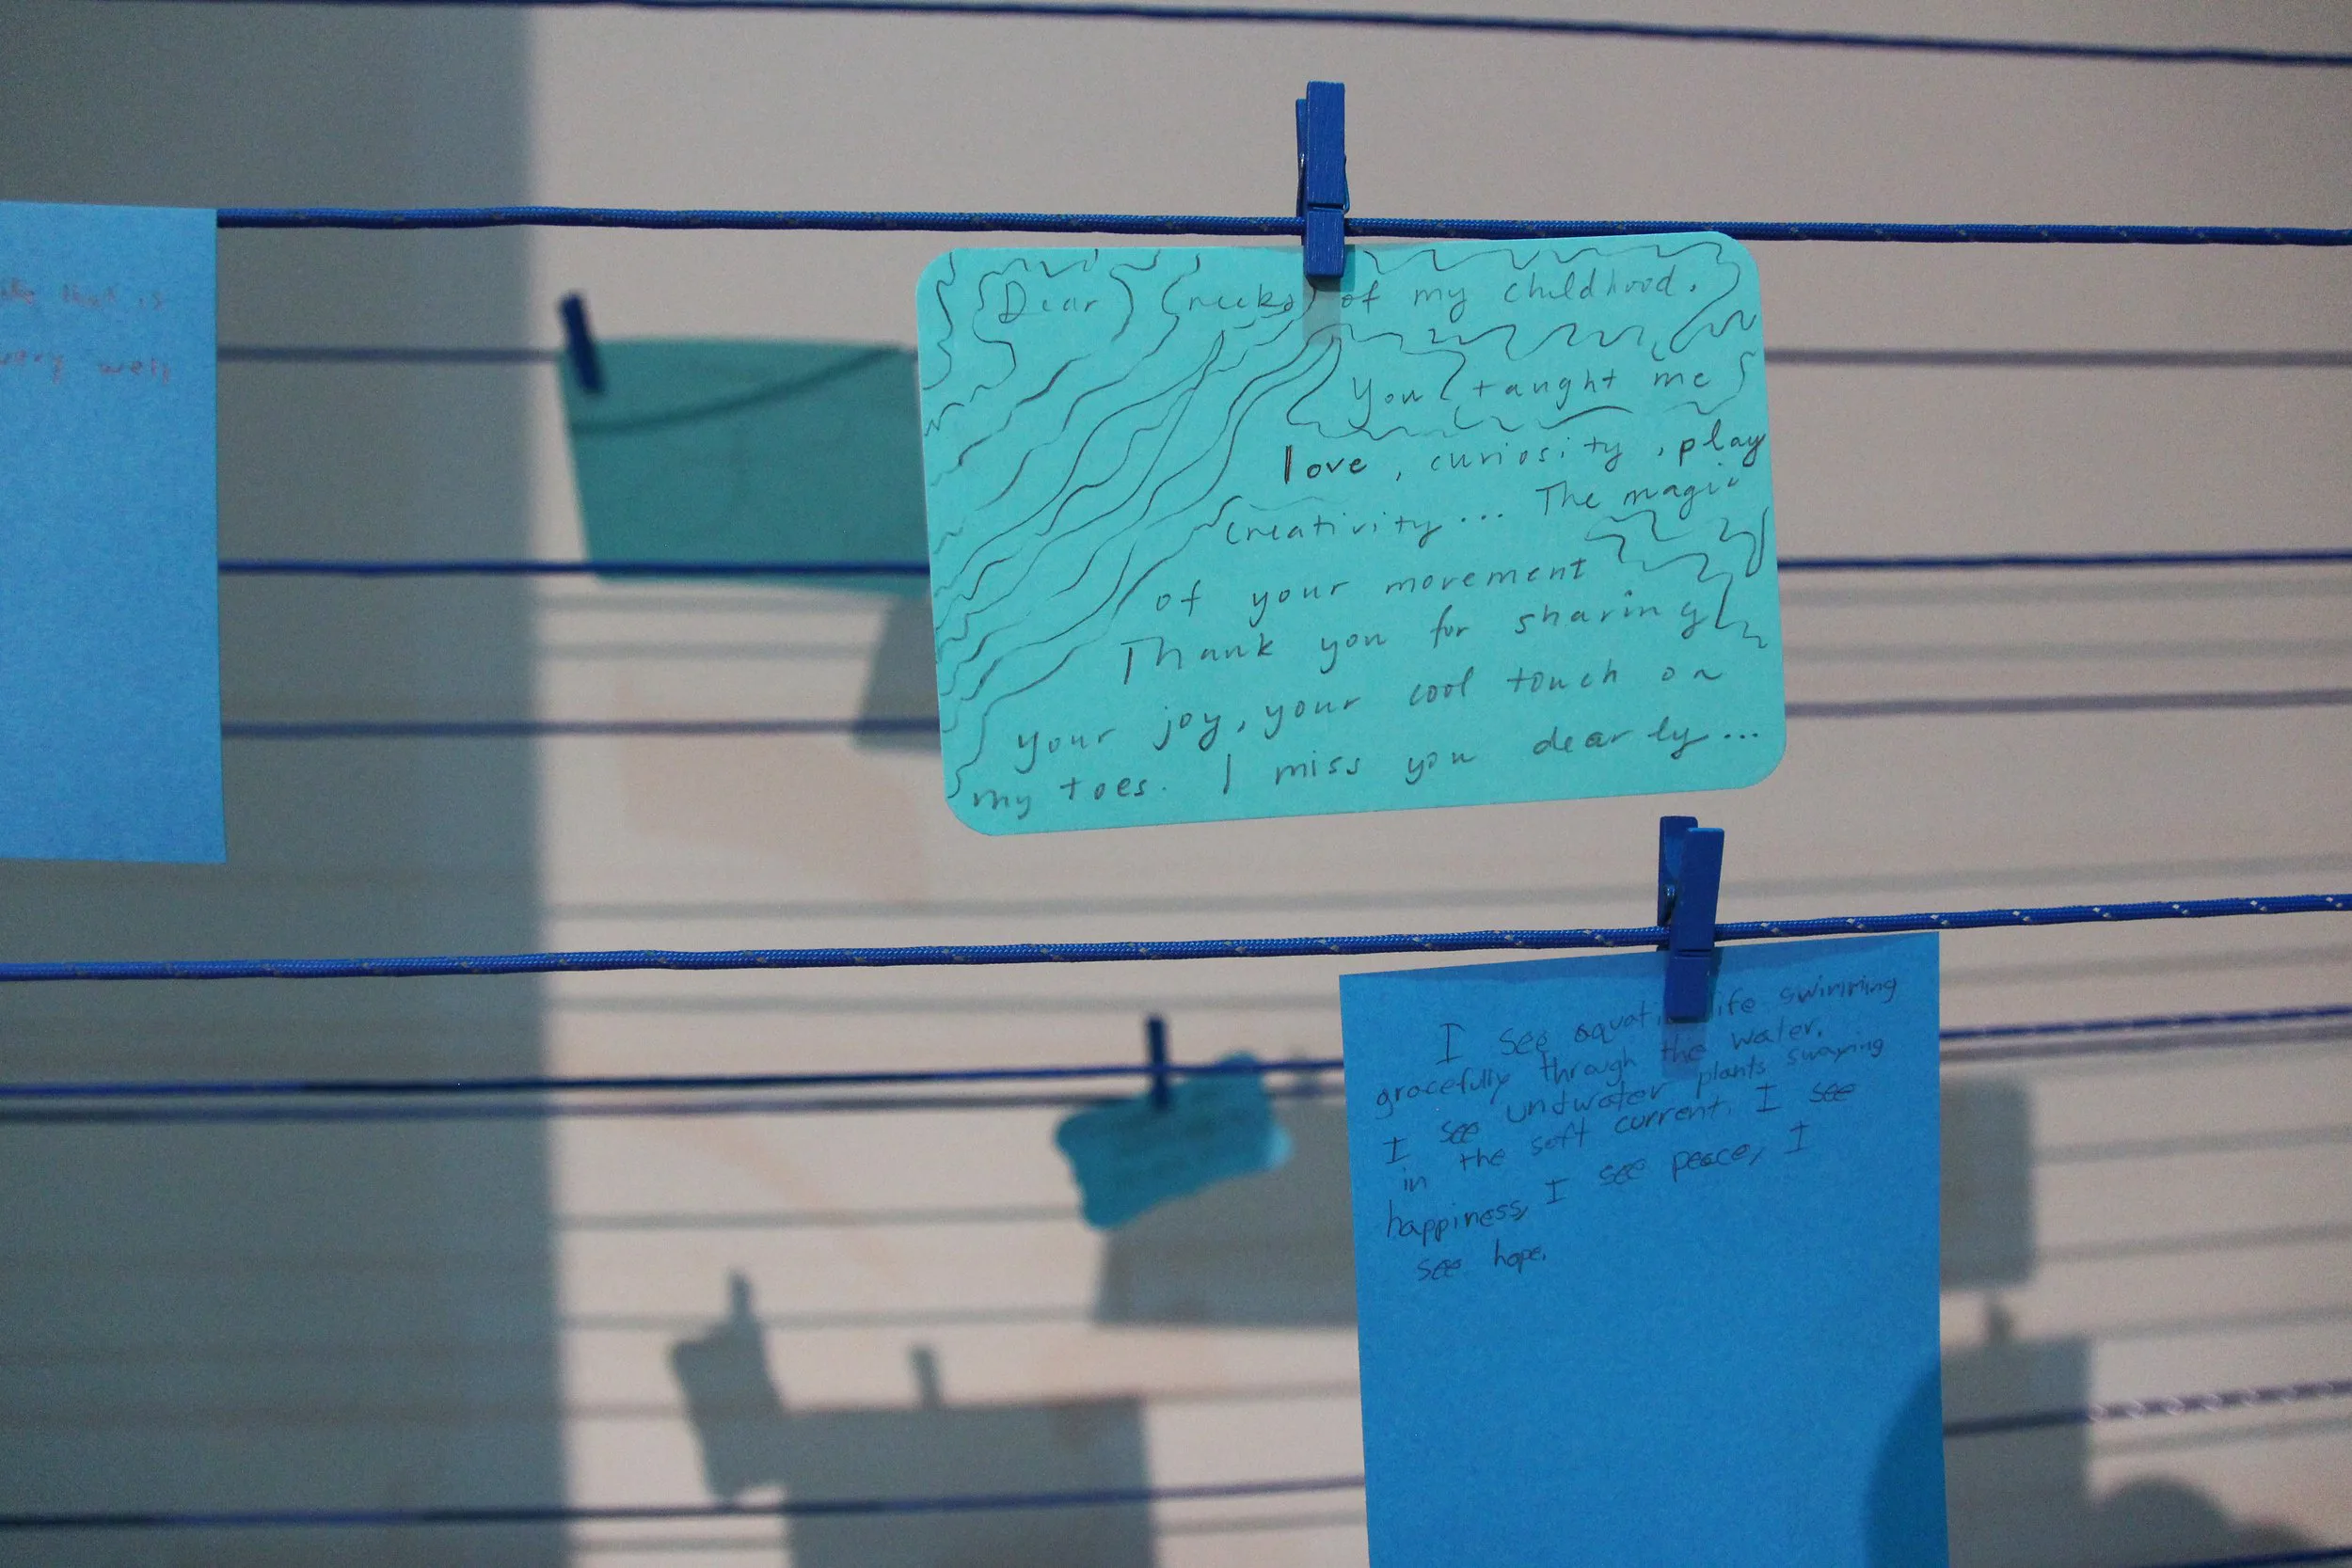 that is
very well
Dear creeks of my childhood.
You taught me
love, curiosity, play
creativity... The magic
of your movement
Thank you for sharing
your joy, your cool touch on
my toes. I miss you dearly...
I see aquatic life swimming
gracefully through the water.
I see undwater plants swaying
in the soft current. I see
happiness, I see peace, I
see hope.